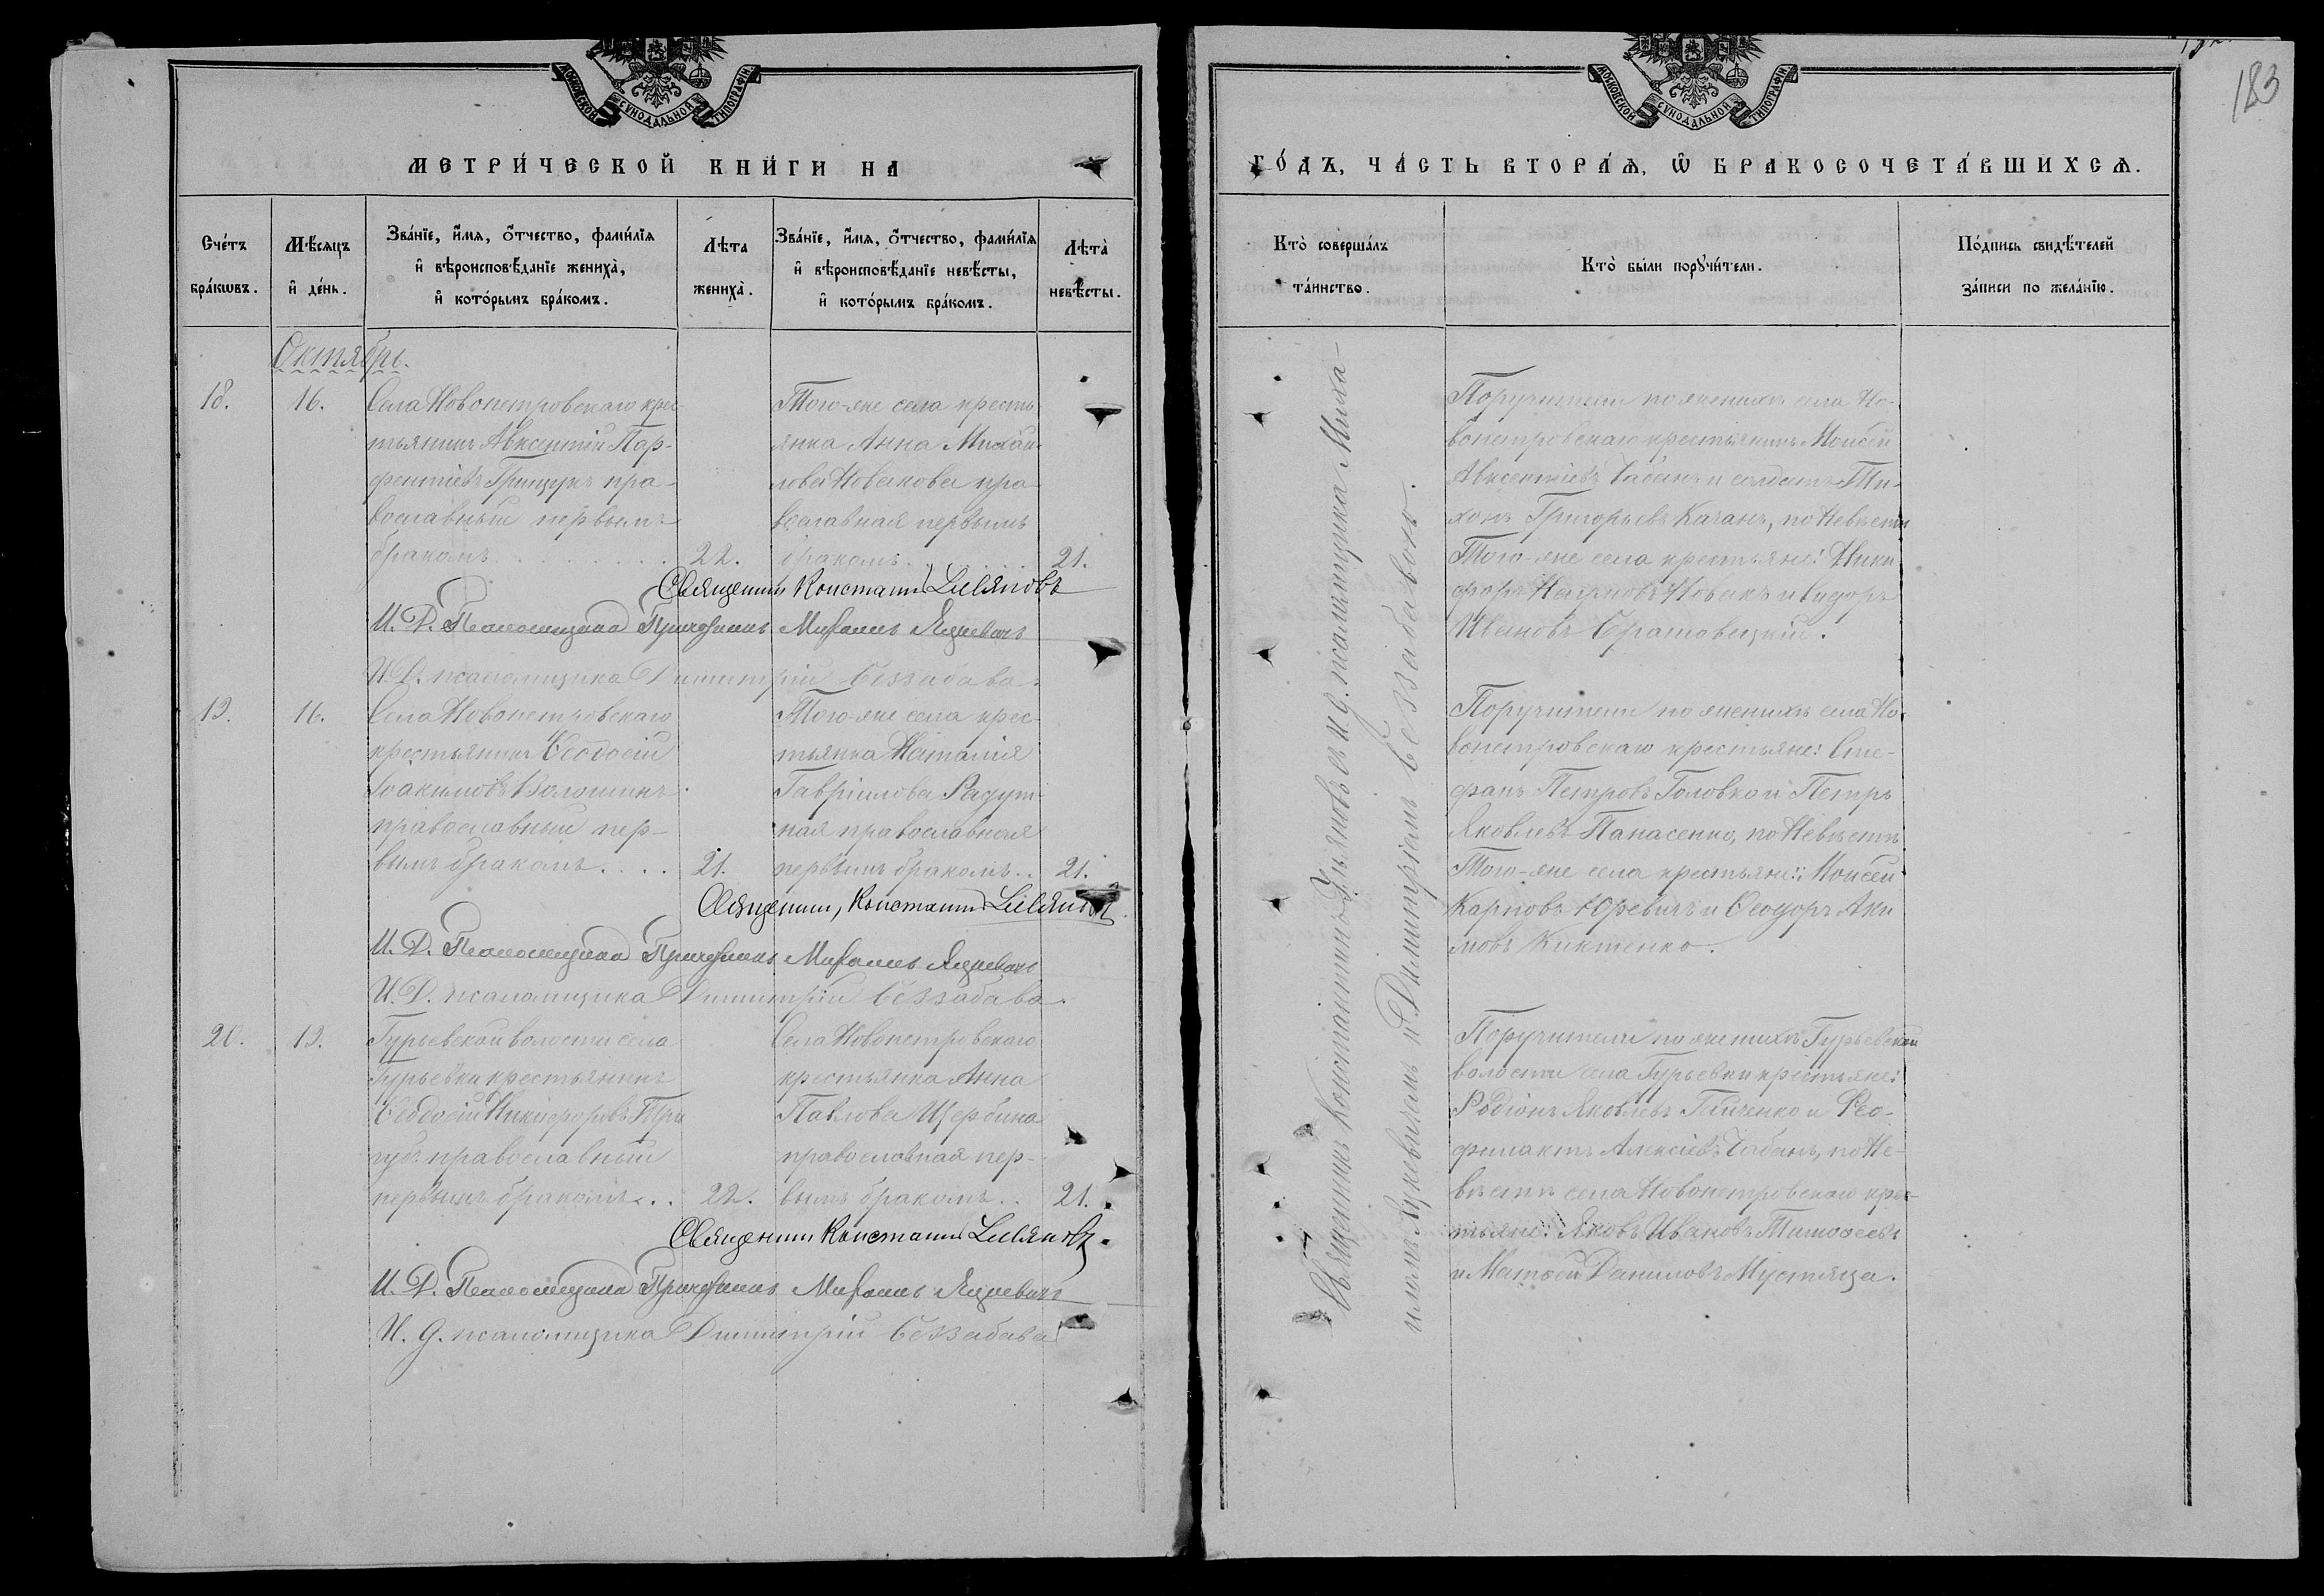 МОСКОВСКОЙ СУНОДАЛЬНОЙ ТИПОГРАФІИ
МЕТРИ́ЧЕСКОЙ КНИ́ГИ НА
Сче́тъ бра́кѡвъ.
Мѣ́сяцъ и҆ де́нь.
Зва́нїе, и҆́мя, ѻ҆́тчество, фами́лїя и҆ вѣроисповѣ́данїе жениха̀, и҆ кото́рымъ бра́комъ.
Лѣ́та жениха̀.
Зва́нїе, и҆́мя, ѻ҆́тчество, фами́лїя и҆ вѣроисповѣ́данїе невѣ́сты, и҆ кото́рымъ бра́комъ.
Лѣта̀ невѣ́сты.
Октябрь.
18.
16.
Села Новопетровскаго крес-
тьянинъ Авксентій Пар-
фентіевъ Грищукъ пра-
вославный первымъ
бракомъ
22.
Того-же села кресть
янка Анна Михаи
лова Новакова пра-
вославная первымъ
бракомъ
21.
Священникъ Константинъ Ульяновъ
И. Д. Псаломщика Михаилъ Яцкевичъ
И. Д. псаломщика Димитрій Беззабава.
19.
16.
Села Новопетровскаго
крестьянинъ Ѳеодосій
Іоакимовъ Волошинъ
православный пер-
вымъ бракомъ....
21.
Того-же села крес-
тьянка Наталія
Гавріилова Радут-
ная православная
первымъ бракомъ..
21.
Священникъ Константинъ Ульяновъ
И. Д. Псаломщика Михаилъ Яцкевичъ
И. Д. псаломщика Димитрій Беззабава.
20.
19.
Гурьевской волости села
Гурьевки крестьянинъ
Ѳеодосій Никифоровъ Три
губъ православный
первымъ бракомъ...
22.
Села Новопетровскаго
крестьянка Анна
Павлова Щербина
православная пер-
вымъ бракомъ..
21.
Священникъ Константинъ Ульяновъ.
И. Д. Псаломщика Михаилъ Яцкевичъ
И. д. псаломщика Димитрій Беззабава
183
МОСКОВСКОЙ СУНОДАЛЬНОЙ ТИПОГРАФІИ
ГО́ДЪ, ЧА́СТЬ ВТОРА́Я, Ѡ҆ БРАКОСОЧЕТА́ВШИХСЯ.
Кто̀ соверша́лъ та́инство.
Кто̀ бы́ли порꙋчи́тели.
По́дпись свидѣ́телей за́писи по жела́нїю.
Священникъ Константинъ Ульяновъ съ и. д. псаломщика Миха-
иломъ Яцкевичемъ и Димитріемъ Беззабавою.
Поручители по женихѣ села Но-
вопетровскаго крестьянинъ Моисей
Авксентіевъ Чабанъ и солдатъ Ти-
хонъ Григорьевъ Качанъ, по Невѣстѣ
Того-же села крестьяне: Ники
форъ Новакъ и Сидоръ
Ивановъ
Поручители по женихѣ села Но-
вопетровскаго крестьяне: Сте-
фанъ Петровъ Головко и Петръ
Яковлевъ Панасенко, по Невѣстѣ
Того-же села крестьяне: Моисей
Карповъ Юревичъ и Ѳеодоръ Аки
мовъ Киктенко.
Поручители по женихѣ Гурьевской
волости села Гурьевки крестьяне:
Родіонъ Яковлевъ Гайченко и Ѳео-
филактъ Алексіевъ Чабанъ, по Не-
вѣстѣ села Новопетровскаго крес-
тьяне: Яковъ Ивановъ Тимоѳеевъ
и Матѳей Даниловъ Мустяца.